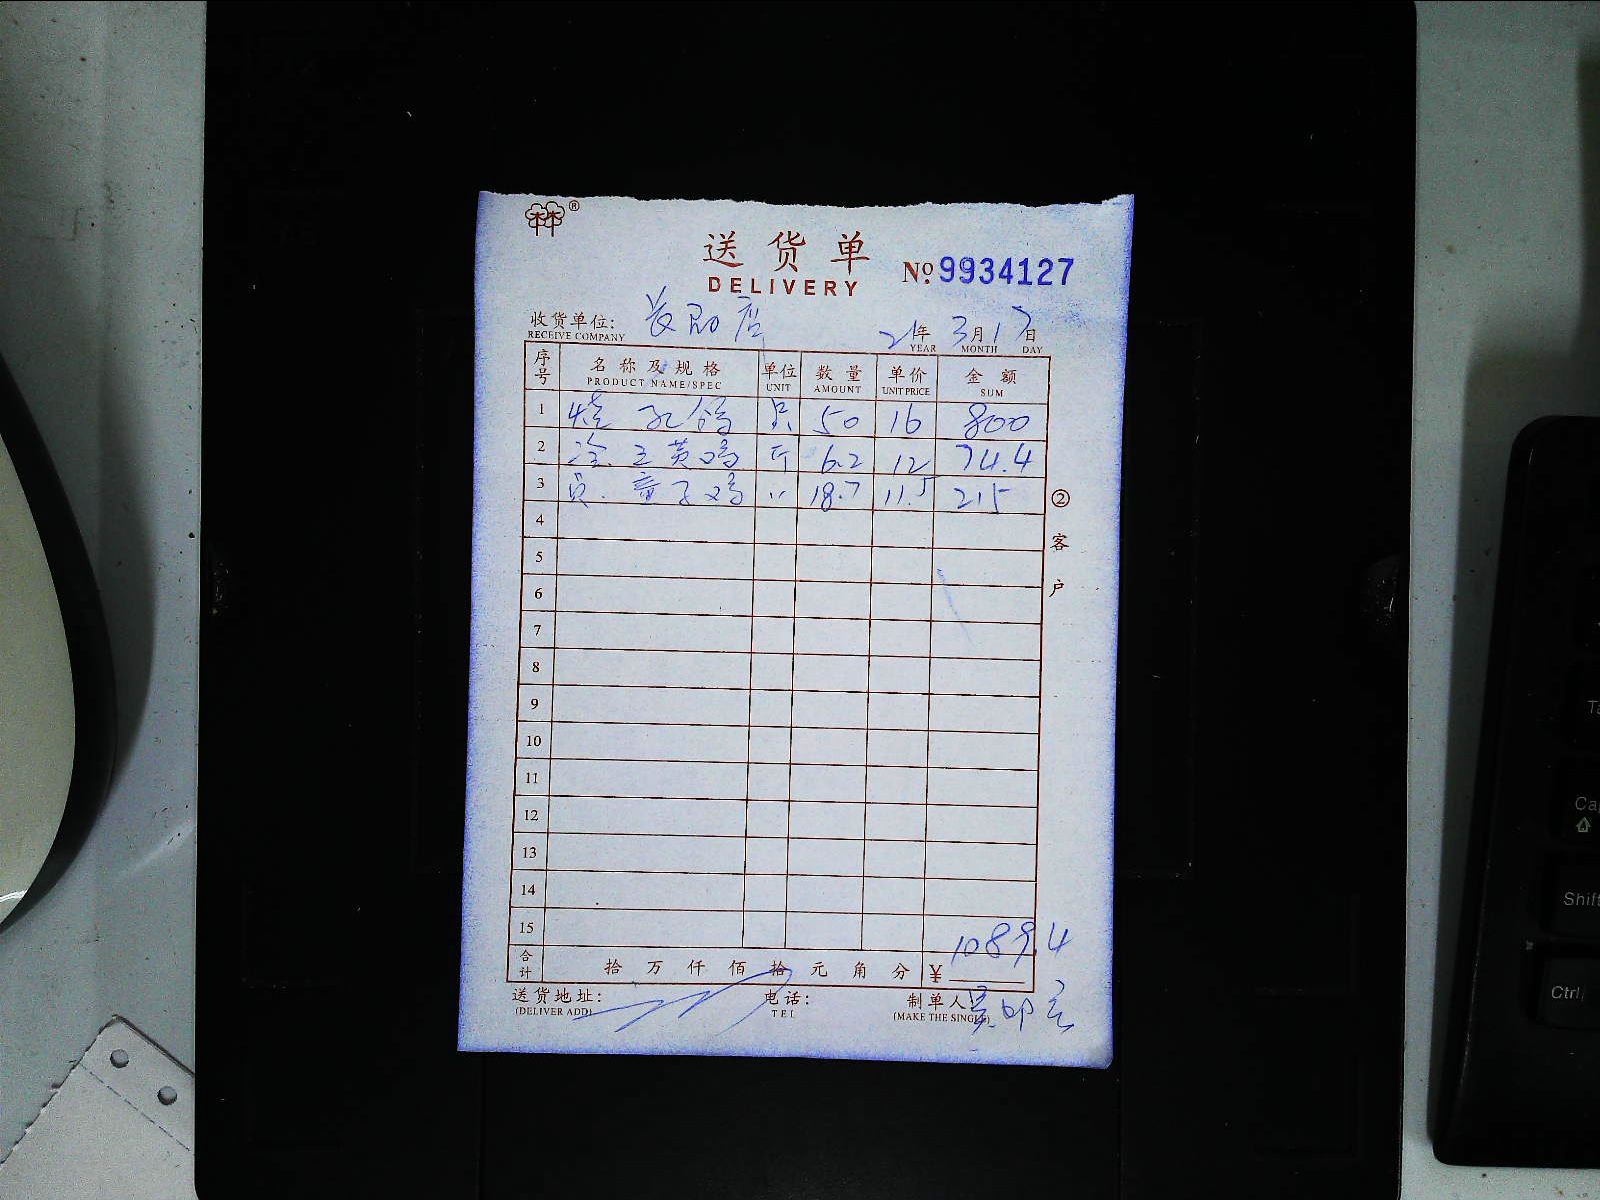 林林®
送货单
No.9934127
DELIVERY
收货单位: 店 21年3月17日
RECEIVE COMPANY YEAR MONTH DAY
序号 名称及规格 单位 数量 单价 金额
PRODUCT NAME/SPEC UNIT AMOUNT UNIT PRICE SUM
1 烧 孔鸽 只 50 16 800
2 冷.三黄鸡 斤 6.2 12 74.4
3 童子鸡 〃 18.7 11.5 215
② 客户
4
5
6
7
8
9
10
11
12
13
14
15
1089.4
合计 拾万仟佰拾元角分 ¥
送货地址: 电话: 制单人:
(DELIVER ADD) TEL (MAKE THE SINGLE)
Ta
Ca
Shift
Ctrl